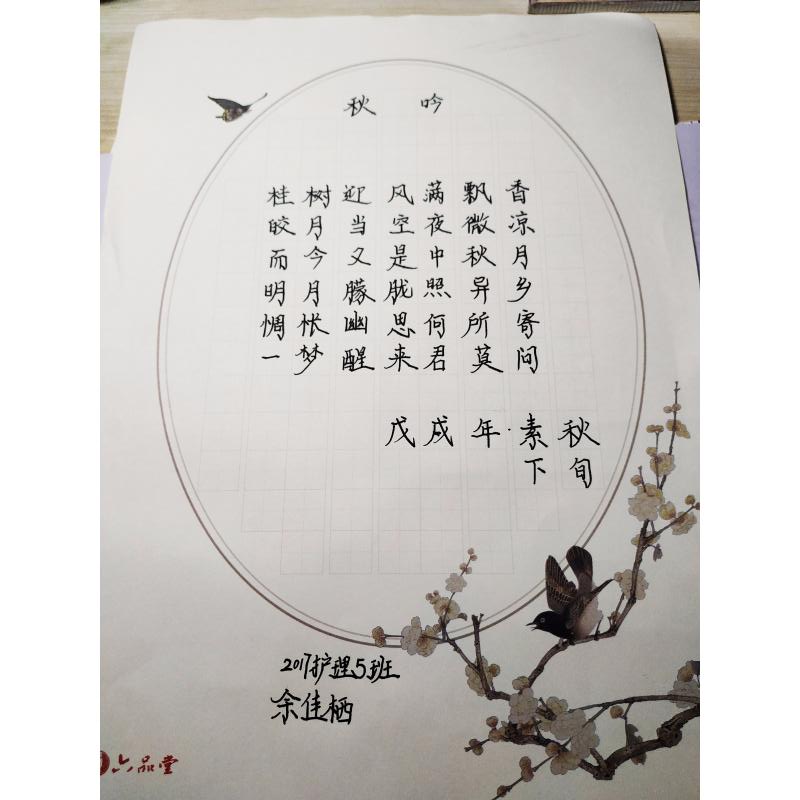 秋吟
桂树迎风满飘香
皎月当空夜微凉
而今又是中秋月
明月朦胧照异乡
惆怅幽思何所寄
一梦醒来君莫问
戊戌年·素秋
下旬
2017护理5班
余佳栖
六品堂